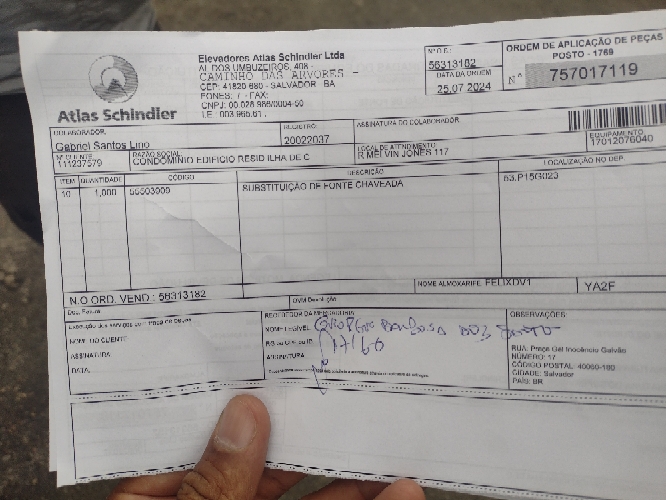 Atlas Schindler
Elevadores Atlas Schindler Ltda
AL DOS UMBUZEIROS, 408 -
CAMINHO DAS ARVORES -
CEP: 41820 680 - SALVADOR BA
FONES: / - FAX:
CNPJ: 00.028.986/0004-50
I.E : 003.965.61.
N° O.E.:
56313182
DATA DA ORDEM
25.07.2024
ORDEM DE APLICAÇÃO DE PEÇAS
POSTO - 1769
N° 757017119
COLABORADOR
Gabriel Santos Lino
REGISTRO
20022037
ASSINATURA DO COLABORADOR
EQUIPAMENTO
17012076040
N° CLIENTE
111237579
RAZÃO SOCIAL
CONDOMINIO EDIFICIO RESID ILHA DE C
LOCAL DE ATENDIMENTO
R MELVIN JONES 117
ITEM QUANTIDADE CÓDIGO DESCRIÇÃO LOCALIZAÇÃO NO DEP.
10 1,000 SUBSTITUIÇÃO DE FONTE CHAVEADA 53.P15G023
N.O ORD. VEND.: 56313182
NOME ALMOXARIFE FELIXDV1 YA2F
NOME DO CLIENTE
ASSINATURA
DATA:
RECEBEDOR DA MERCADORIA
NOME LEGÍVEL
ASSINATURA
17160
OBSERVAÇÕES:
RUA: Praça Gal Inocêncio Galvão
NÚMERO: 17
CÓDIGO POSTAL: 40060-180
CIDADE: Salvador
PAÍS: BR